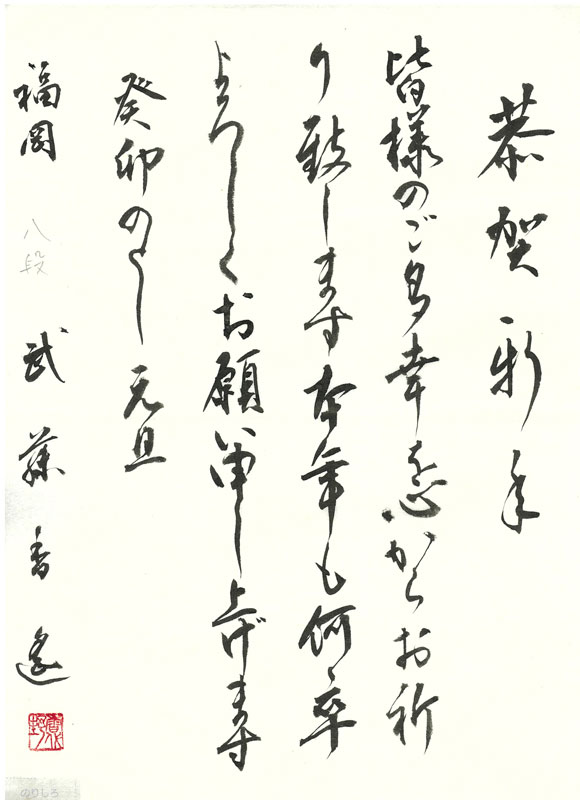 恭賀新年
皆様のご多幸を心からお祈
り致します本年も何卒
よろしくお願い申し上げます
癸卯のとし 元旦
福岡 八段 武藤香遙
のりしろ